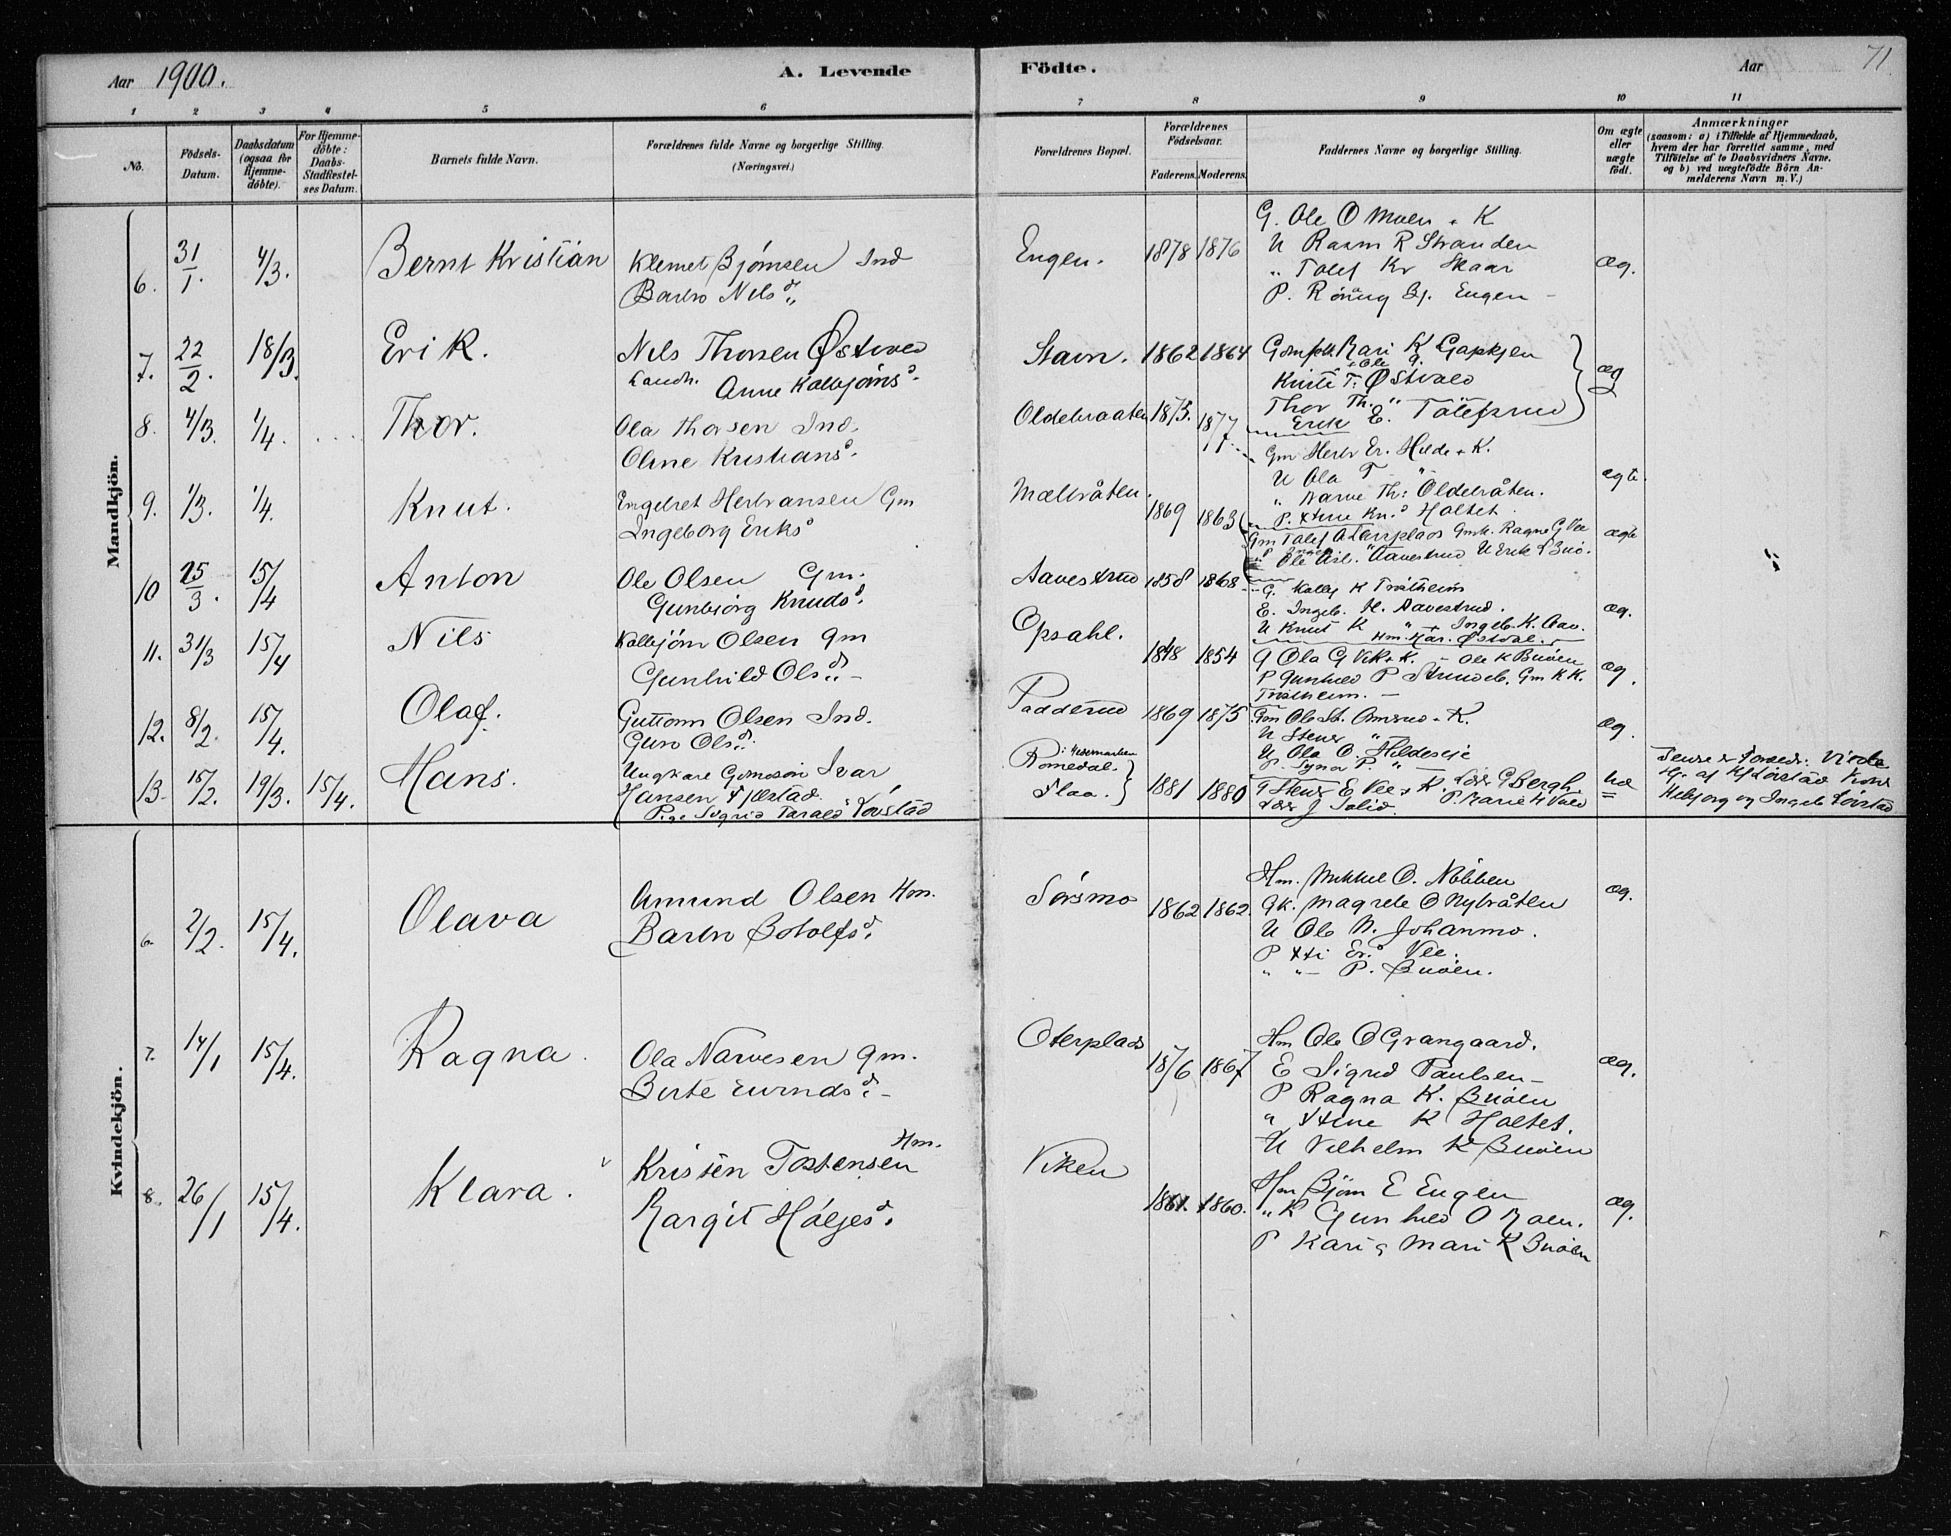 Aar 1900.
A. Levende Födte.
Aar
71
1 2 3 4 5 6 7 8 9 10 11
No.
Födsels-Datum.
Daabsdatum (ogsaa for Hjemme-döbte).
For Hjemme-döbte: Daabs-Stadfæstel-ses Datum.
Barnets fulde Navn.
Forældrenes fulde Navne og borgerlige Stilling. (Næringsvei.)
Forældrenes Bopæl.
Forældrenes Födselsaar.
Faderens. Moderens.
Faddernes Navne og borgerlige Stilling.
Om ægte eller uægte födt.
Anmærkninger
(saasom: a) i Tilfælde af Hjemmedaab, hvem der har forrettet samme, med Tilföielse af to Daabsvidners Navne, og b) ved uægtefödte Börn An-melderens Navn m. V.)
Mandkjön.
6. 31/1. 4/3. Bernt Kristian Klemet Bjørnsen Ind
Barbro Nilsd.
Engen. 1878 1876
G. Ole O Moen + K
U Rasm R Stranden
" Tolef Kr Skaar
P. Rönnug Bj. Engen
æg.
7. 22/2. 18/3. Erik. Nils Thorsen Østvold
Landh. Anne Kolbjörnsd.
Stavn. 1862 1864
Kari K Gapkjen
Kristi T. Østvold
Thor Th. "
Erik E. Tolefsrud
æg
8. 4/3. 1/4. Thor. Ola Thorsen Ind.
Oline Kristiansd.
Oldebraaten 1875. 1877
Gm Herbr Er. Hilde + K.
U Ola T "
" Narve Th: Oldebråten.
P. Xtine Kn.d Holtet
ægte.
9. 1/3. 1/4. Knut. Engebret Herbransen Gm
Ingeborg Eriksd
Mælbråten. 1869 1863
Gm Tolef Oterplads Gmk. Ragne G Vee
ægte
10 25/3. 15/4 Anton Ole Olsen Gm.
Gunbjörg Knudsd.
Aavestrud 1858 1868
G. Kolbj K Trolheim
E. Ingeb. H. Aavestrud.
U Knut K " Ingeb. K. Aav.
æg.
11. 31/3 15/4 Nils Kolbjörn Olsen gm
Gunhild Olsd.
Opsahl. 1848 1854
G Ola G Vik + K. Ole K Bruöen
P Gunhild P Strandeb. Gm K K.
Trolheim.
æg.
12. 8/2. 15/4. Olaf. Guttorm Olsen Ind.
Guro Olsd.
Padderud 1869 1875
Gm Ole St. Omsrud + K.
U Stener "
U Ola O. Hildeseje
P. Synør P. "
æg.
13. 15/2. 19/3. 15/4. Hans. Ungkarl Gmosön Ivar
Hansen
Pige Sigrid Taralsd Lövstad
i Hedemarken
Romedal.
Flaa. 1881 1880
T Stener E. Vee + K Lærer G Bergh
Lærer J Solid. P. Marie K Vold
Kvindekjön.
6. 2/2. 15/4. Olava Amund Olsen Hm.
Barbro Botolfsd.
Sörsmo 1862 1862.
Hm. Mikkel O. Nöbben
gk. Magrete O Nybråten
U Ole N. Johanmo.
P Xti Er.d Vee.
" " P. Bruöen.
æg.
7. 14/1 15/4. Ragna. Ola Narvesen gm.
Birte Eivindsd.
Oterplads 1876 1867
Hm Ole O Grangaard.
E Sigrid Paulsen
P Ragna K. Bruöen
" Xtine K Holtet.
U Vilhelm K Bruöen
æg.
8. 26/1 15/4. Klara. Kristen Tostensen Hm.
Margit Höljesd.
Viken 1861. 1860.
Hm Björn E Engen
" K Gunhild O Moen.
P Kari & Mari K Bruöen
æg.